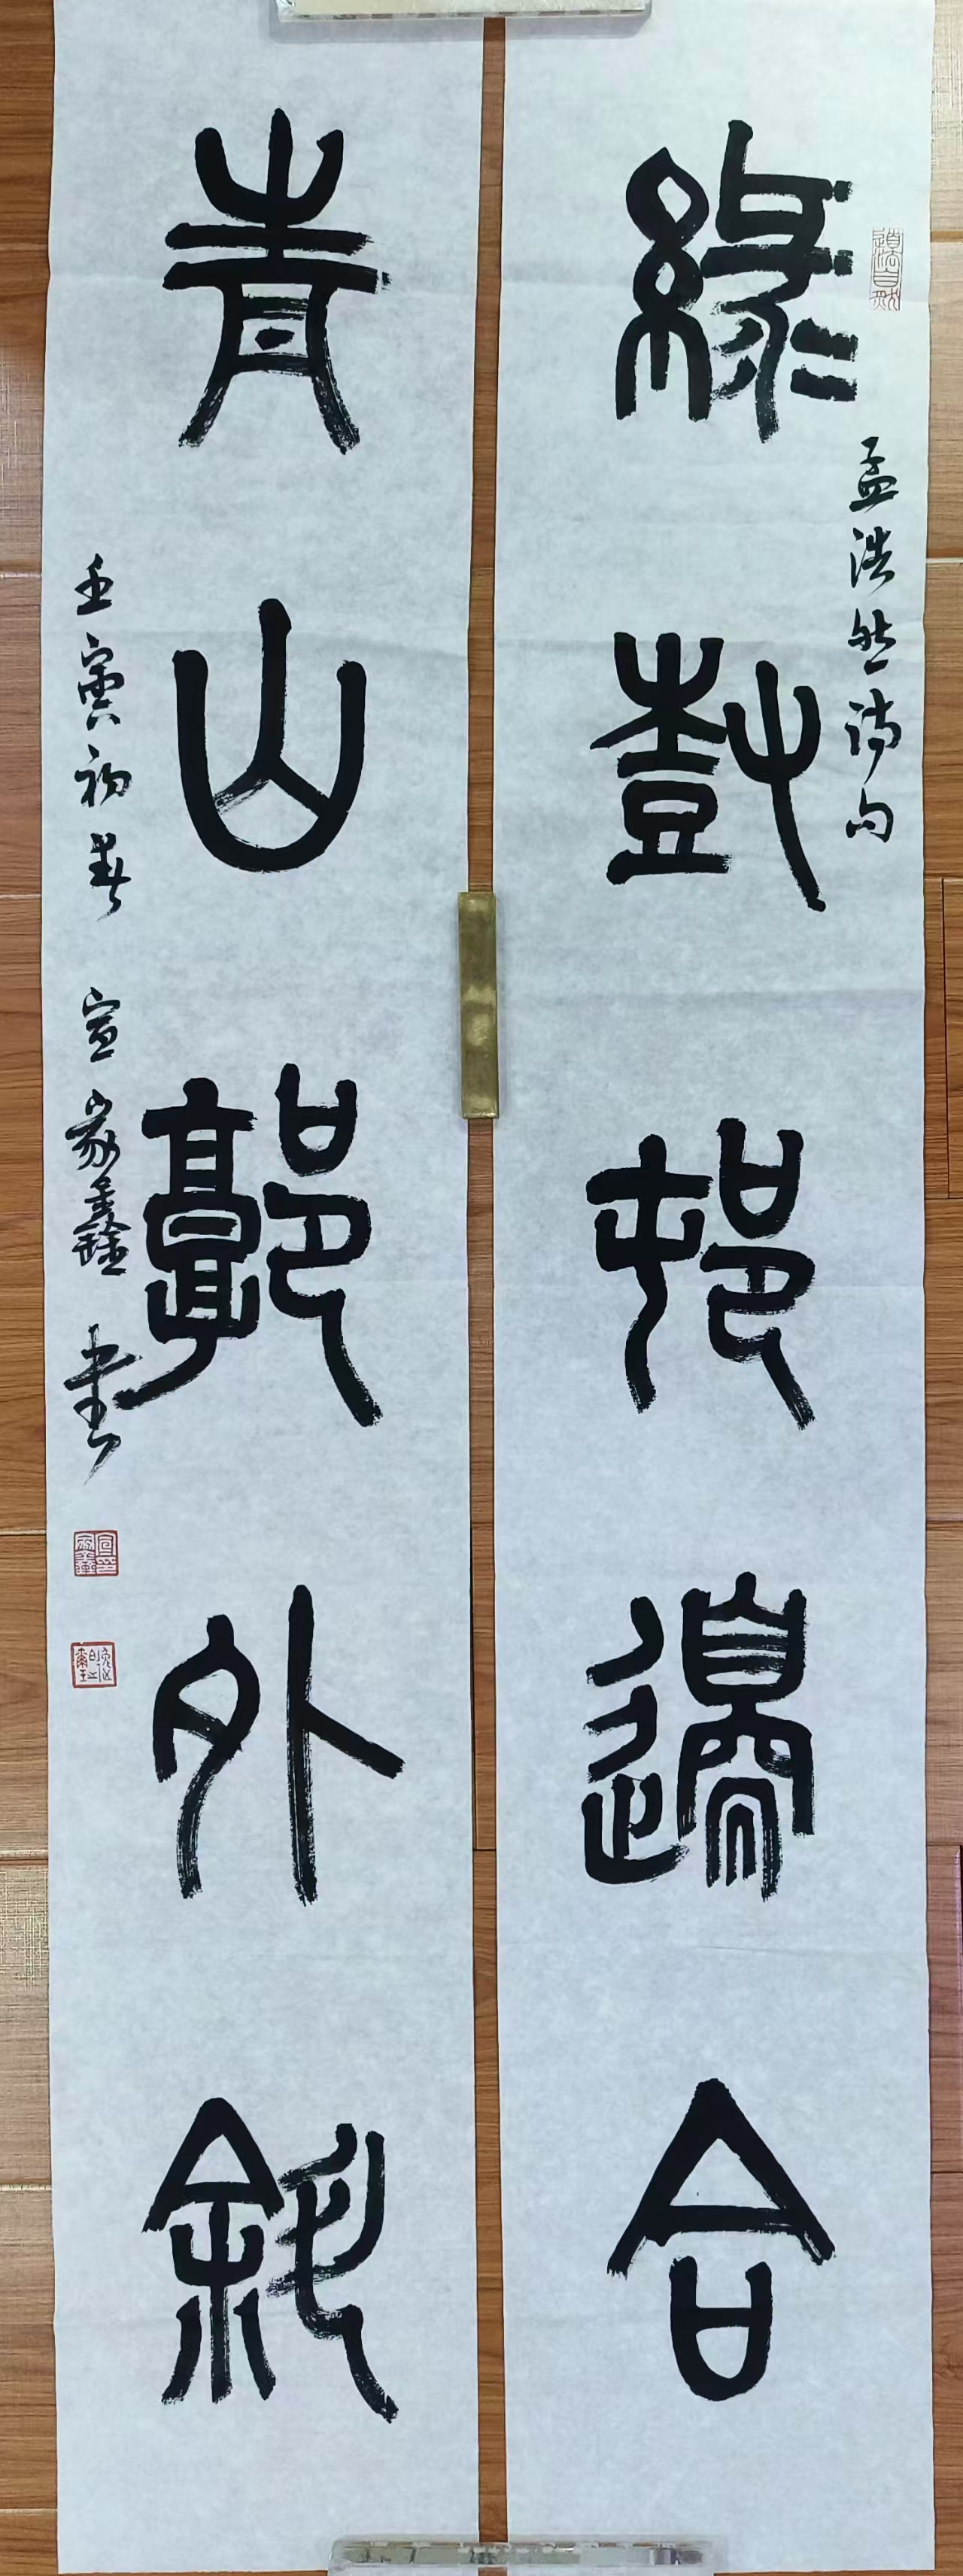 綠樹邨邊合
孟浩然詩句
青山郭外斜
壬寅初春 宣家鑫書